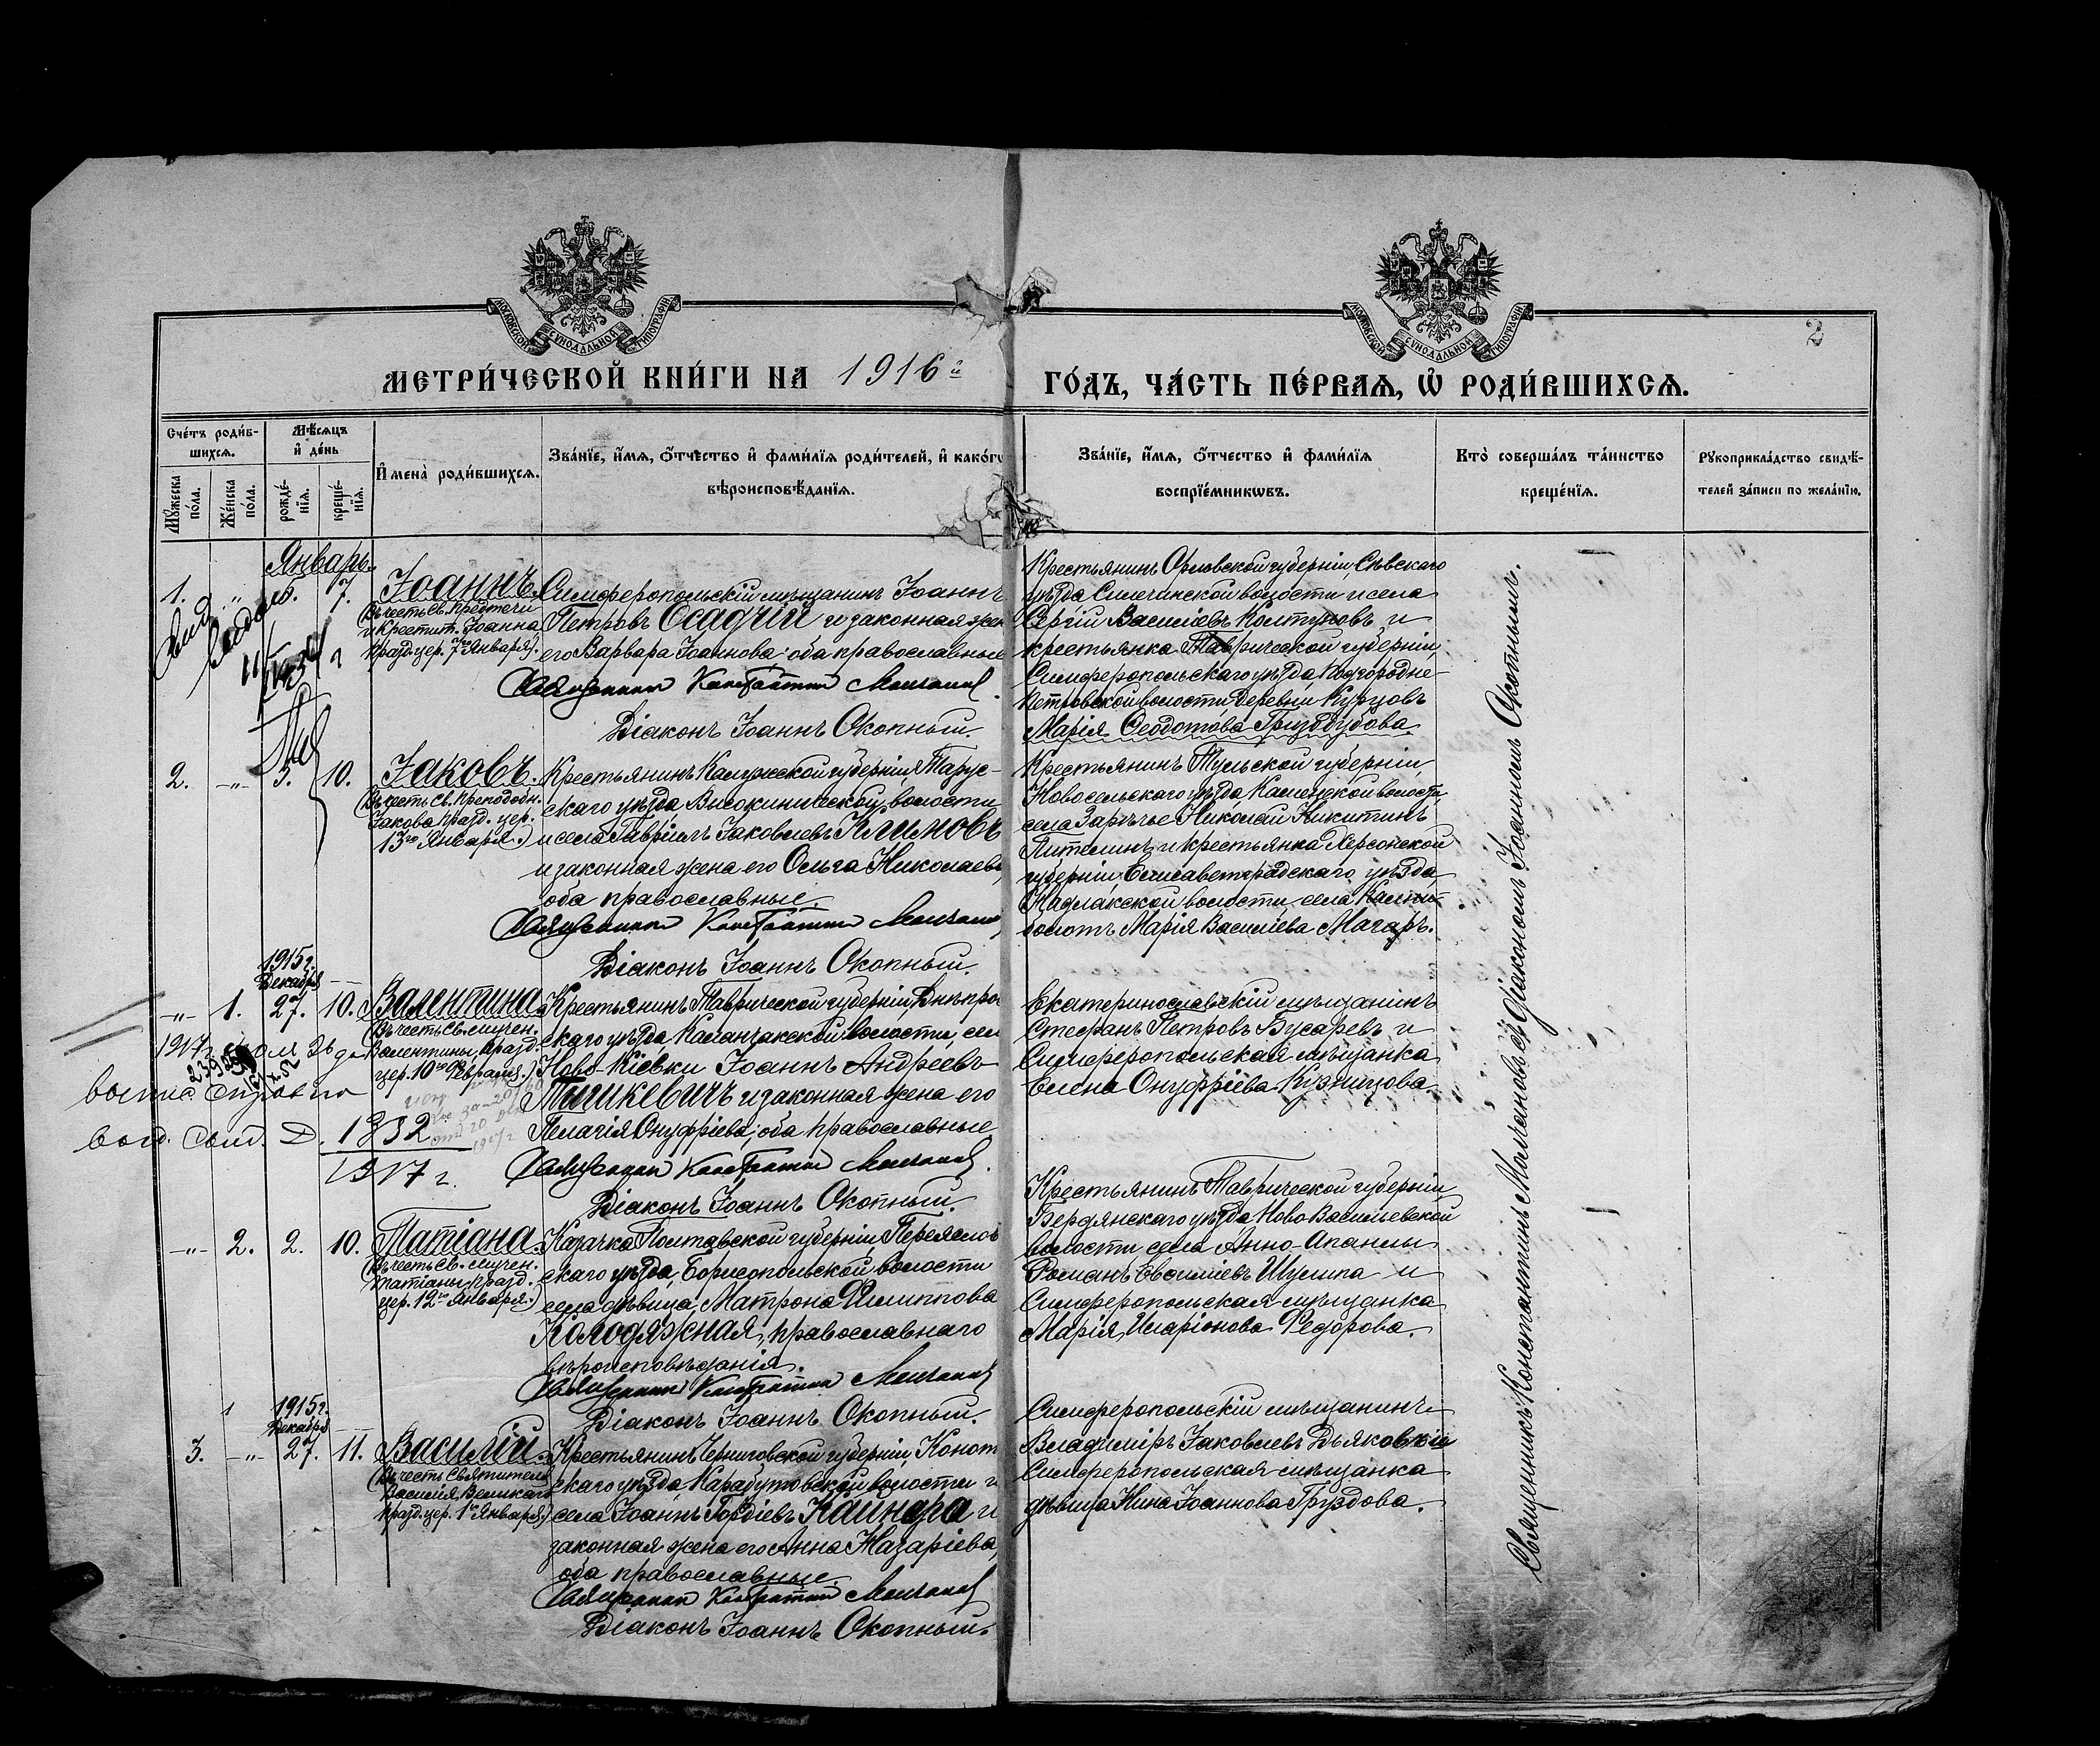 МОСКОВСКОЙ СѴНОДАЛЬНОЙ ТИПОГРАФІИ
МОСКОВСКОЙ СѴНОДАЛЬНОЙ ТИПОГРАФІИ
2
МЕТРИ́ЧЕСКОЙ КНИ́ГИ НА 1916й ГО́ДЪ, ЧА́СТЬ ПЕ́РВАѦ, Ѡ҆ РОДИ́ВШИХСѦ.
Сче́тъ роди́в-
шихсѧ.
Мꙋ́жеска по́ла.
Же́нска по́ла.
Мѣ́сѧцъ
и҆ де́нь
рожде́-
нїѧ.
креще́-
нїѧ.
И҆мена̀ роди́вшихсѧ.
Зва́нїе, и҆́мѧ, ѻ҆́тчество и҆ фами́лїѧ роди́телей, и҆ како́гѡ
вѣроисповѣ́данїѧ.
Зва́нїе, и҆́мѧ, ѻ҆́тчество и҆ фами́лїѧ
воспрїе́мникѡвъ.
Кто̀ соверша́лъ та́инство
креще́нїѧ.
Рꙋкоприкла́дство свидѣ́-
телей за́писи по жела́нїю.
Январь.
1. " 7. Іоаннъ.
(Въ честь Св. Предтечи
и Крестит. Іоанна
празд. цер. 7го Января).
Симферопольскій мѣщанинъ Іоаннъ
Петровъ Осадчій и законная жен
его Варвара Іоаннова оба православные
Священник Константин Молчанов.
Діаконъ Іоаннъ Окопный.
Крестьянинъ Орловской губерніи, Сѣвскаго
уѣзда Симечинской волости и села
Сергій Василіевъ Колтуновъ и
крестьянка Таврической губерніи,
Симферопольскаго уѣзда, Подгородне-
Петровской волости деревни Курцовъ
Марія Феодотова Груздубова.
2. -"- 5. 10. Іаковъ.
(Въ честь Св. Преподобн.
Іакова празд. цер.
13го Января.)
Крестьянинъ Калужской губерніи, Тарус-
скаго уѣзда, Высокиничской волости
и села Гавріилъ Іаковлевъ Климовъ
и законная жена его Ольга Николаева
оба православные.
Священник Константин Молчанов
Діаконъ Іоаннъ Окопный.
Крестьянинъ Тульской губерніи,
Новосельскаго уѣзда Каменской волости,
села Зарѣчье Николай Никитинъ
Питемин и крестьянка Херсонской
губерніи, Елисаветградскаго уѣзда,
Надлакской волости, села
Марія Василіева Магаръ.
1915г.
Декабря
-"- 1. 27. 10. Валентина.
(Въ честь Св. мучен.
Валентины, празд.
цер. 10го Февраля.)
Крестьянинъ Таврической губерніи, Днѣпров
скаго уѣзда Каланчакской волости, сел
Ново-Кіевки Іоаннъ Андреевъ
Тышкевичъ и законная жена его
Пелагія Онуфріева, оба православные
Священник Константин Молчанов.
Діаконъ Іоаннъ Окопный.
1832
1917 г.
Екатеринославскій мѣщанинъ
Стефанъ Петровъ Бусаревъ и
Симферопольская мѣщанка
Елена Онуфріева Кузнецова.
-"- 2. 2. 10. Татіана.
(Въ честь Св. мучен.
Татіаны, празд.
цер. 12го Января.)
Казачка Полтавской губерніи, Переяслов
скаго уѣзда, Борисопольской волости
села дѣвица, Матрона Филиппова
Колодяжная, православнаго
вѣроисповѣданія.
Священник Константин Молчанов
Діаконъ Іоаннъ Окопный.
Крестьянинъ Таврической губерніи
Бердянскаго уѣзда, Ново Васильевской
волости, села Анно-Апанлы
Романъ Евсиміевъ Шулика и
Симферопольская мѣщанка
Марія Иларіонова Федорова.
1915г.
Декабря
3. -"- 27. 11. Василій.
(Въ честь Святителя
Василія Великаго
празд. цер. 1го Января.)
Крестьянинъ Черниговской губерніи, Конот
скаго уѣзда Карабутовской волости и
села Іоаннъ Гордіевъ Кайнара и
законная жена его Анна Назаріева,
оба православные.
Священник Константин Молчанов
Діаконъ Іоаннъ Окопный.
Симферопольскій мѣщанинъ
Владиміръ Іаковлевъ Дьяковскій
Симферопольская мѣщанка
дѣвица Нина Іоаннова Груздова.
Священникъ Константинъ Молчановъ съ діакономъ Іоанномъ Окопнымъ.